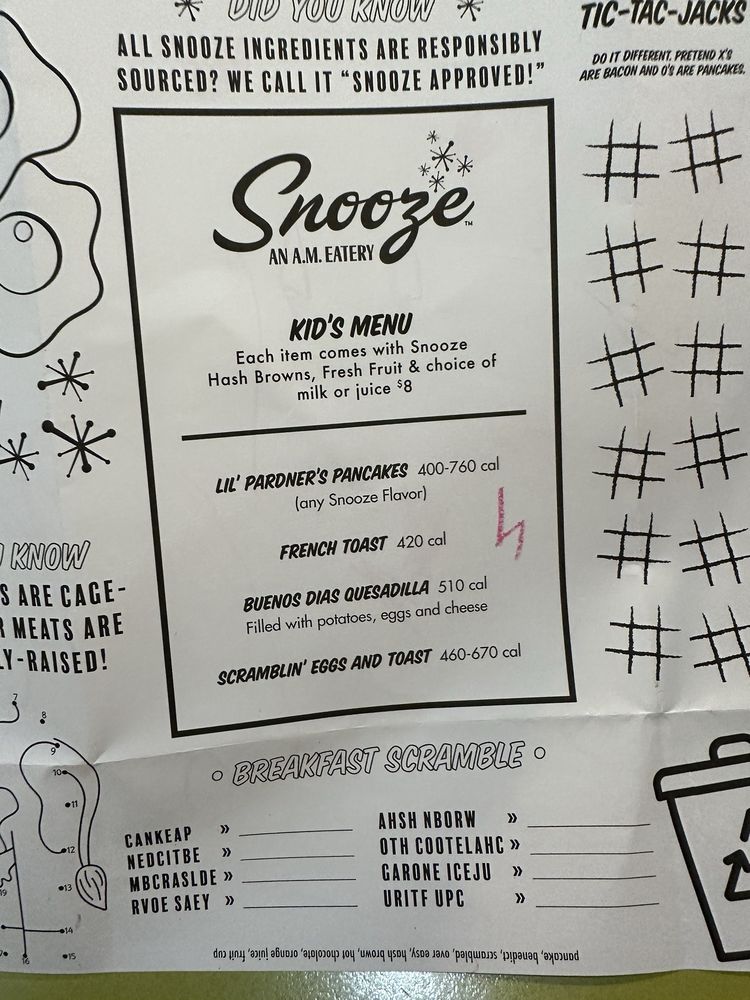 DID YOU KNOW
ALL SNOOZE INGREDIENTS ARE RESPONSIBLY
SOURCED? WE CALL IT “SNOOZE APPROVED!”
TIC-TAC-JACKS
DO IT DIFFERENT. PRETEND X'S
ARE BACON AND O'S ARE PANCAKES.
Snooze™
AN A.M. EATERY
KID'S MENU
Each item comes with Snooze
Hash Browns, Fresh Fruit & choice of
milk or juice $8
LIL' PARDNER'S PANCAKES 400-760 cal
(any Snooze Flavor)
FRENCH TOAST 420 cal
BUENOS DIAS QUESADILLA 510 cal
Filled with potatoes, eggs and cheese
SCRAMBLIN' EGGS AND TOAST 460-670 cal
KNOW
S ARE CAGE-
R MEATS ARE
LY-RAISED!
7
8
9
10
11
12
13
14
15
16
19
BREAKFAST SCRAMBLE
CANKEAP »
NEDCITBE »
MBCRASLDE »
RVOE SAEY »
AHSH NBORW »
OTH COOTELAHC »
GARONE ICEJU »
URITF UPC »
pancake, benedict, scrambled, over easy, hash brown, hot chocolate, orange juice, fruit cup